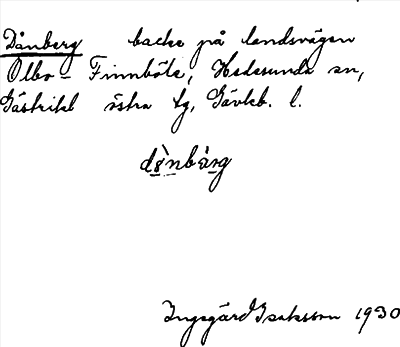 Dånberg backe på landsvägen
Ölbo - Finnböle, Hedesunda sn,
Gästrikl östra tg, Gävleb. l.
Ingegärd Isaksson 1930